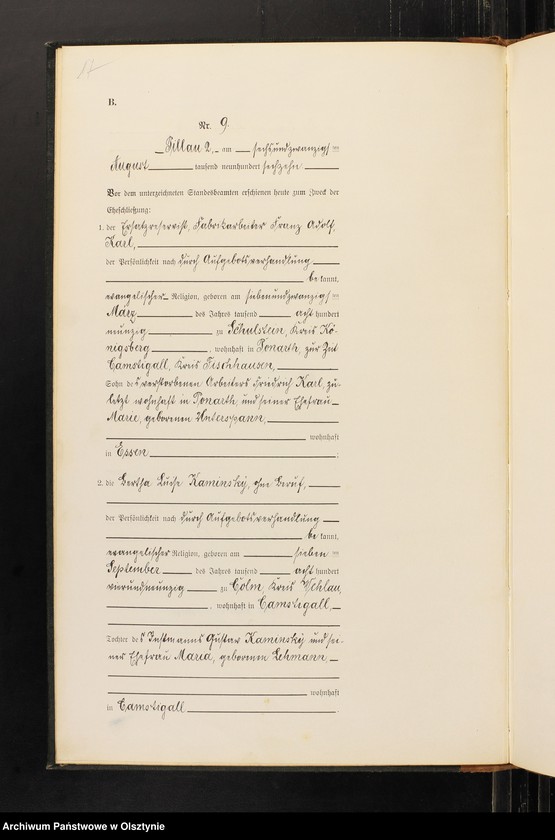 17
B.
Nr. 9.
Pillau 2, am sechsundzwanzigsten
August tausend neunhundert sechzehn
Vor dem unterzeichneten Standesbeamten erschienen heute zum Zweck der
Eheschließung:
1. der Ersatzreservist, Fabrikarbeiter Franz Adolf
Karl,
der Persönlichkeit nach durch Aufgebotsverhandlung
be kannt,
evangelischer Religion, geboren am siebenundzwanzigsten
März des Jahres tausend acht hundert
neunzig zu Schulstein, Kreis Kö-
nigsberg, wohnhaft in Ponarth, zur Zeit
Camstigall, Kreis Fischhausen,
Sohn des verstorbenen Arbeiters Friedrich Karl, zu-
letzt wohnhaft in Ponarth, und seiner Ehefrau
Marie, geborenen Unterspann,
wohnhaft
in Essen.
2. die Bertha Luise Kaminsky, ohne Beruf,
der Persönlichkeit nach durch Aufgebotsverhandlung
be kannt,
evangelischer Religion, geboren am sieben ten
September des Jahres tausend acht hundert
vierundneunzig zu Colm, Kreis Wehlau,
, wohnhaft in Camstigall,
Tochter des Instmanns Gustav Kaminsky und sei-
ner Ehefrau Maria, geborenen Lehmann,
wohnhaft
in Camstigall.
Archiwum Państwowe w Olsztynie